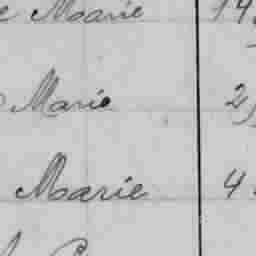 e Marie 14
Marie 2
Marie 4